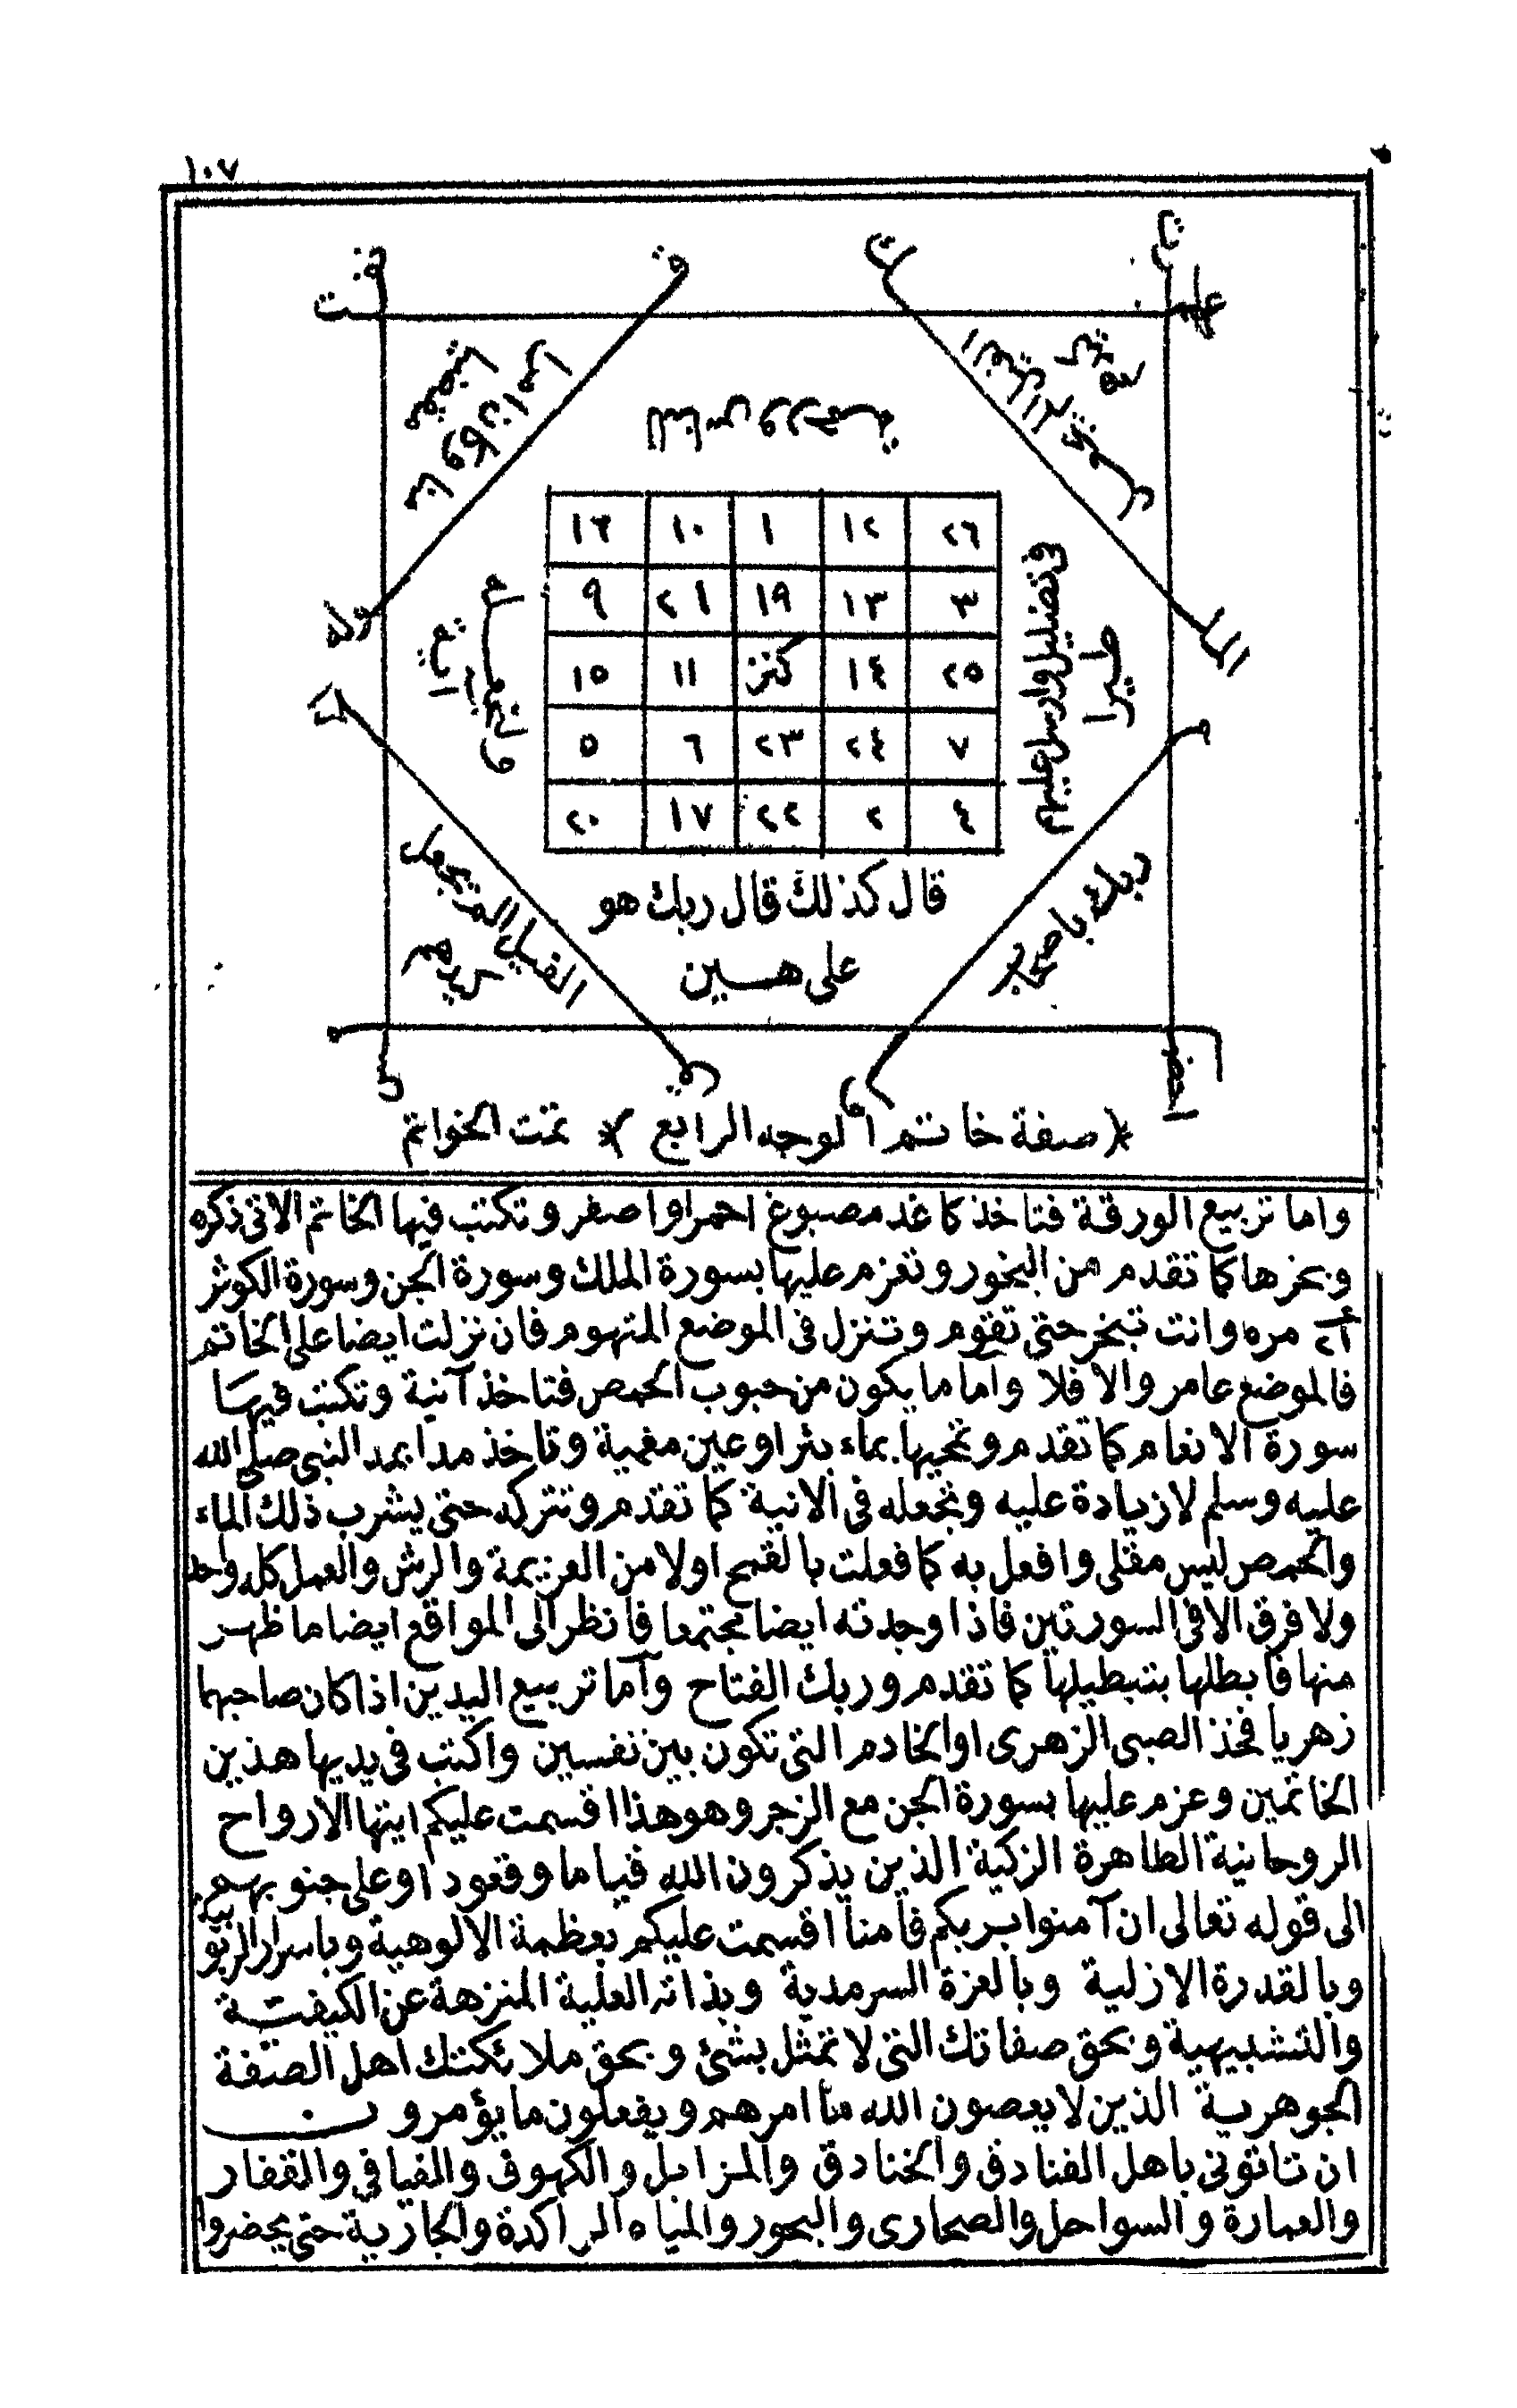 ١٠٧
٢٦ ١٢ ١ ١٠ ١٦
٣ ١٣ ١٩ ٢١ ٩
٢٥ ١٤ كنز ١١ ١٥
٧ ٢٤ ٢٣ ٦ ٥
٤ ٢ ٢٢ ١٧ ٢٠
في تضليل وارسل عليهم
طيرا
قال كذلك قال ربك هو
على هــين
صفة خاتم الوجه الرابع تمت الخواتم
واما تربيع الورقة فتاخذ كاغد مصبوغ احمر او اصفر وتكتب فيها الخاتم الاتى ذكره
وبخرها كما تقدم من البخور وتعزم عليها بسورة الملك وسورة الجن وسورة الكوثر
٢١ مره وانت تبخر حتى تقوم وتنزل فى الموضع المتهوم فان نزلت ايضا على الخاتم
فالموضع عامر والا فلا واما ما يكون من حبوب الحمص فتاخذ آنية وتكتب فيها
سورة الانعام كما تقدم وتمحيها بماء بئر او عين مغمية وتاخذ مدا بمد النبى صلى الله
عليه وسلم لا زيادة عليه وتجعله فى الانية كما تقدم وتتركه حتى يشرب ذلك الماء
والحمص ليس مقلى وافعل به كما فعلت بالقمح اولا من العزيمة والرش والعمل كله واحد
ولا فرق الا فى السورتين فاذا وجدته ايضا مجتمعا فانظر الى المواقع ايضا ما ظهر
منها فابطلها بتبطيلها كما تقدم وربك الفتاح واما تربيع اليدين اذا كان صاحبهما
زهريا فخذ الصبى الزهرى او الخادم التى تكون بين نفسين واكتب فى يديها هذين
الخاتمين وعزم عليها بسورة الجن مع الزجر وهو هذا اقسمت عليكم ايتها الارواح
الروحانية الطاهرة الزكية الذين يذكرون الله قياما وقعود او على جنوبهم
الى قوله تعالى ان آمنوا بربكم فآمنا اقسمت عليكم بعظمة الالوهية وباسرار الربوبية
وبالقدرة الازلية وبالعزة السرمدية وبذاته العلية المنزهة عن الكيفية
والتشبيهية وبحق صفاتك التى لا تمثل بشئ وبحق ملائكتك اهل الصفة
الجوهرية الذين لا يعصون الله ما امرهم ويفعلون ما يؤمرون
ان تاتونى باهل الفنادق والخنادق والمزابل والكهوف والفيافى والقفار
والعمارة والسواحل والصحارى والبحور والمياه الراكدة والجارية حتى يحضروا